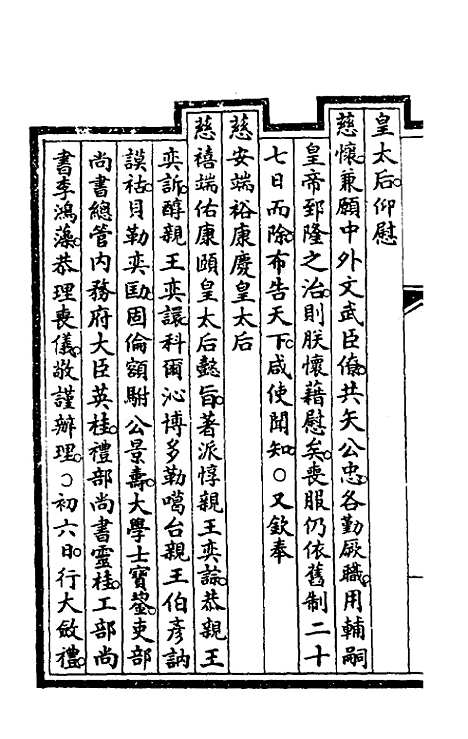 皇太后。仰慰
慈懷。兼願中外文武臣僚。共矢公忠。各勤厥職。用輔嗣
皇帝郅隆之治。則朕懷藉慰矣。喪服仍依舊制二十
七日而除。布告天下。咸使聞知。○又欽奉
慈安端裕康慶皇太后
慈禧端佑康頤皇太后懿旨。著派惇親王奕誴。恭親王
奕訢。醇親王奕譞科爾沁博多勒噶台親王伯彥訥
謨祜。貝勒奕劻。固倫額駙公景壽。大學士寶鋆。吏部
尚書總管內務府大臣英桂。禮部尚書靈桂。工部尚
書李鴻藻。恭理喪儀。敬謹辦理。○初六日。行大斂禮。